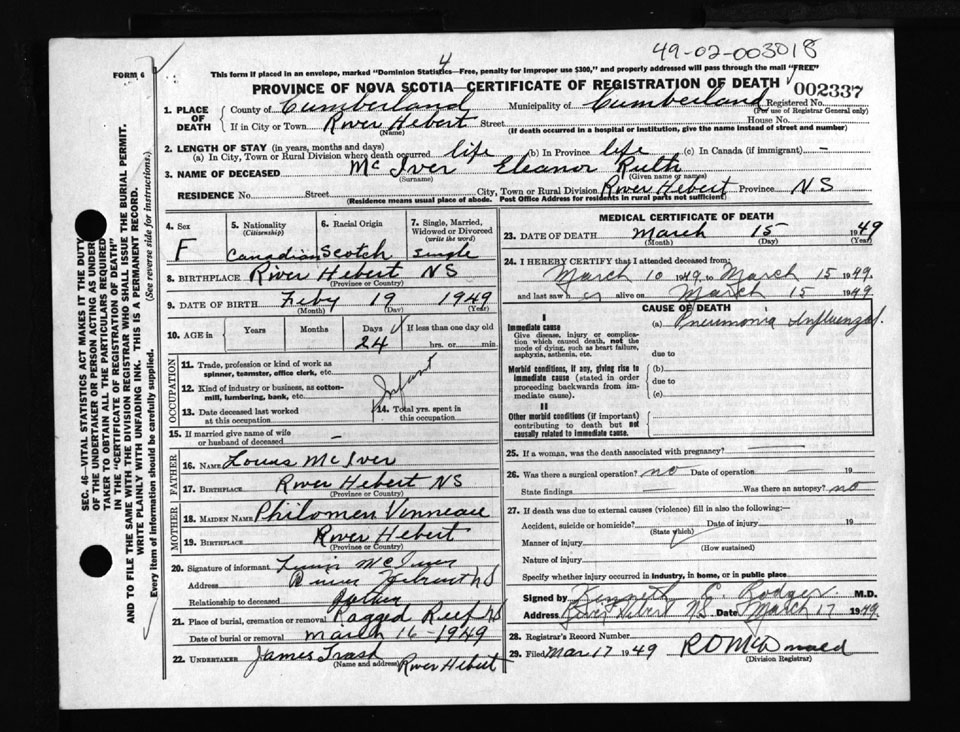 49-02-003018
4
FORM 6
This form if placed in an envelope, marked "Dominion Statistics—Free, penalty for improper use $300," and properly addressed will pass through the mail "FREE"
PROVINCE OF NOVA SCOTIA—CERTIFICATE OF REGISTRATION OF DEATH
002337
1. PLACE OF DEATH
County of Cumberland Municipality of Cumberland Registered No.
(For use of Registrar General only)
If in City or Town River Hebert Street House No.
(Name) (If death occurred in a hospital or institution, give the name instead of street and number)
2. LENGTH OF STAY (in years, months and days)
(a) In City, Town or Rural Division where death occurred life (b) In Province life (c) In Canada (if immigrant) —
3. NAME OF DECEASED Mc Iver Eleanor Ruth
(Surname) (Given name or names)
RESIDENCE No. Street City, Town or Rural Division River Hebert Province NS
(Residence means usual place of abode. Post Office Address for residents in rural parts not sufficient)
4. Sex F
5. Nationality (Citizenship) Canadian
6. Racial Origin Scotch
7. Single, Married, Widowed or Divorced (write the word) Single
8. BIRTHPLACE River Hebert NS
(Province or Country)
9. DATE OF BIRTH Feby 19 1949
(Month) (Day) (Year)
10. AGE in Years Months Days 24 If less than one day old hrs. or min.
OCCUPATION
11. Trade, profession or kind of work as spinner, teamster, office clerk, etc.
12. Kind of industry or business, as cotton-mill, lumbering, bank, etc.
Infant
13. Date deceased last worked at this occupation
14. Total yrs. spent in this occupation
15. If married give name of wife or husband of deceased —
FATHER
16. NAME Louis McIver
17. BIRTHPLACE River Hebert NS
(Province or Country)
MOTHER
18. MAIDEN NAME Philomen Vinneau
19. BIRTHPLACE River Hebert
(Province or Country)
20. Signature of informant McIver
Address River Hebert NS
Relationship to deceased Father
21. Place of burial, cremation or removal Ragged Reef NS
Date of burial or removal March 16-1949
22. UNDERTAKER James Trask River Hebert
(Name and address)
MEDICAL CERTIFICATE OF DEATH
23. DATE OF DEATH March 15 1949
(Month) (Day) (Year)
24. I HEREBY CERTIFY that I attended deceased from:
March 10 1949 to March 15 1949.
and last saw her alive on March 15 1949.
CAUSE OF DEATH
I
Immediate cause
Give disease, injury or complication which caused death, not the mode of dying, such as heart failure, asphyxia, asthenia, etc.
(a) Pneumonia Influenzal.
due to
Morbid conditions, if any, giving rise to immediate cause (stated in order proceeding backwards from immediate cause).
(b)
due to
(c)
II
Other morbid conditions (if important) contributing to death but not causally related to immediate cause.
25. If a woman, was the death associated with pregnancy?
26. Was there a surgical operation? no Date of operation 19
State findings Was there an autopsy? no
27. If death was due to external causes (violence) fill in also the following:—
Accident, suicide or homicide? Date of injury 19
(State which)
Manner of injury
(How sustained)
Nature of injury
Specify whether injury occurred in industry, in home, or in public place
Signed by Kenneth E. Rodger M.D.
Address River Hebert NS Date March 17 1949
28. Registrar's Record Number
29. Filed Mar 17 1949 R D McDonald
(Division Registrar)
SEC. 46—VITAL STATISTICS ACT MAKES IT THE DUTY OF THE UNDERTAKER OR PERSON ACTING AS UNDERTAKER TO OBTAIN ALL THE PARTICULARS REQUIRED IN THE "CERTIFICATE OF REGISTRATION OF DEATH" AND TO FILE THE SAME WITH THE DIVISION REGISTRAR WHO SHALL ISSUE THE BURIAL PERMIT.
WRITE PLAINLY WITH UNFADING INK. THIS IS A PERMANENT RECORD.
Every item of information should be carefully supplied. (See reverse side for instructions.)